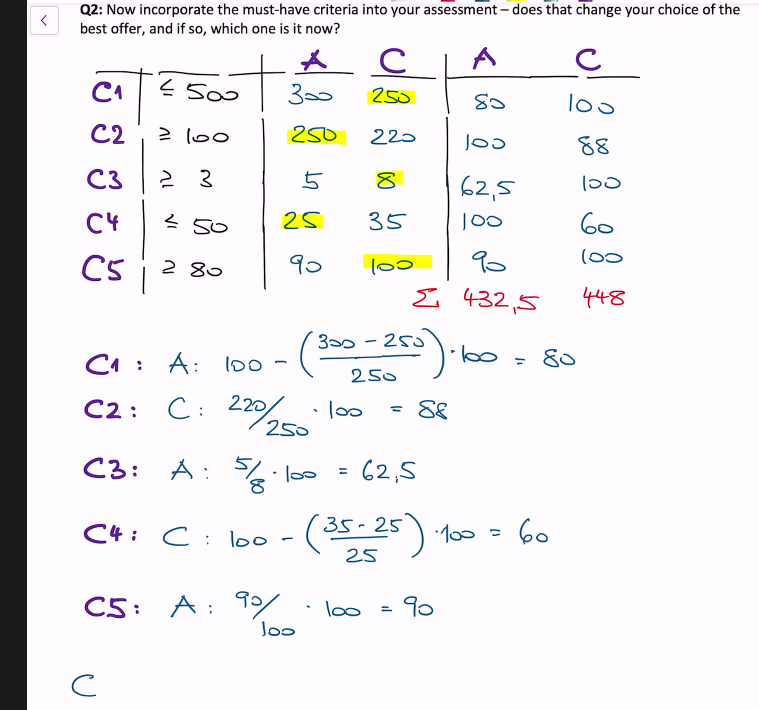 Q2: Now incorporate the must-have criteria into your assessment – does that change your choice of the
best offer, and if so, which one is it now?
A C A C
C1 ≤ 500 300 250 80 100
C2 ≥ 100 250 220 100 88
C3 ≥ 3 5 8 62,5 100
C4 ≤ 50 25 35 100 60
C5 ≥ 80 90 100 90 100
Σ 432,5 448
C1: A: 100 - (300 - 250 / 250) · 100 = 80
C2: C: 220/250 · 100 = 88
C3: A: 5/8 · 100 = 62,5
C4: C: 100 - (35 - 25 / 25) · 100 = 60
C5: A: 90/100 · 100 = 90
C